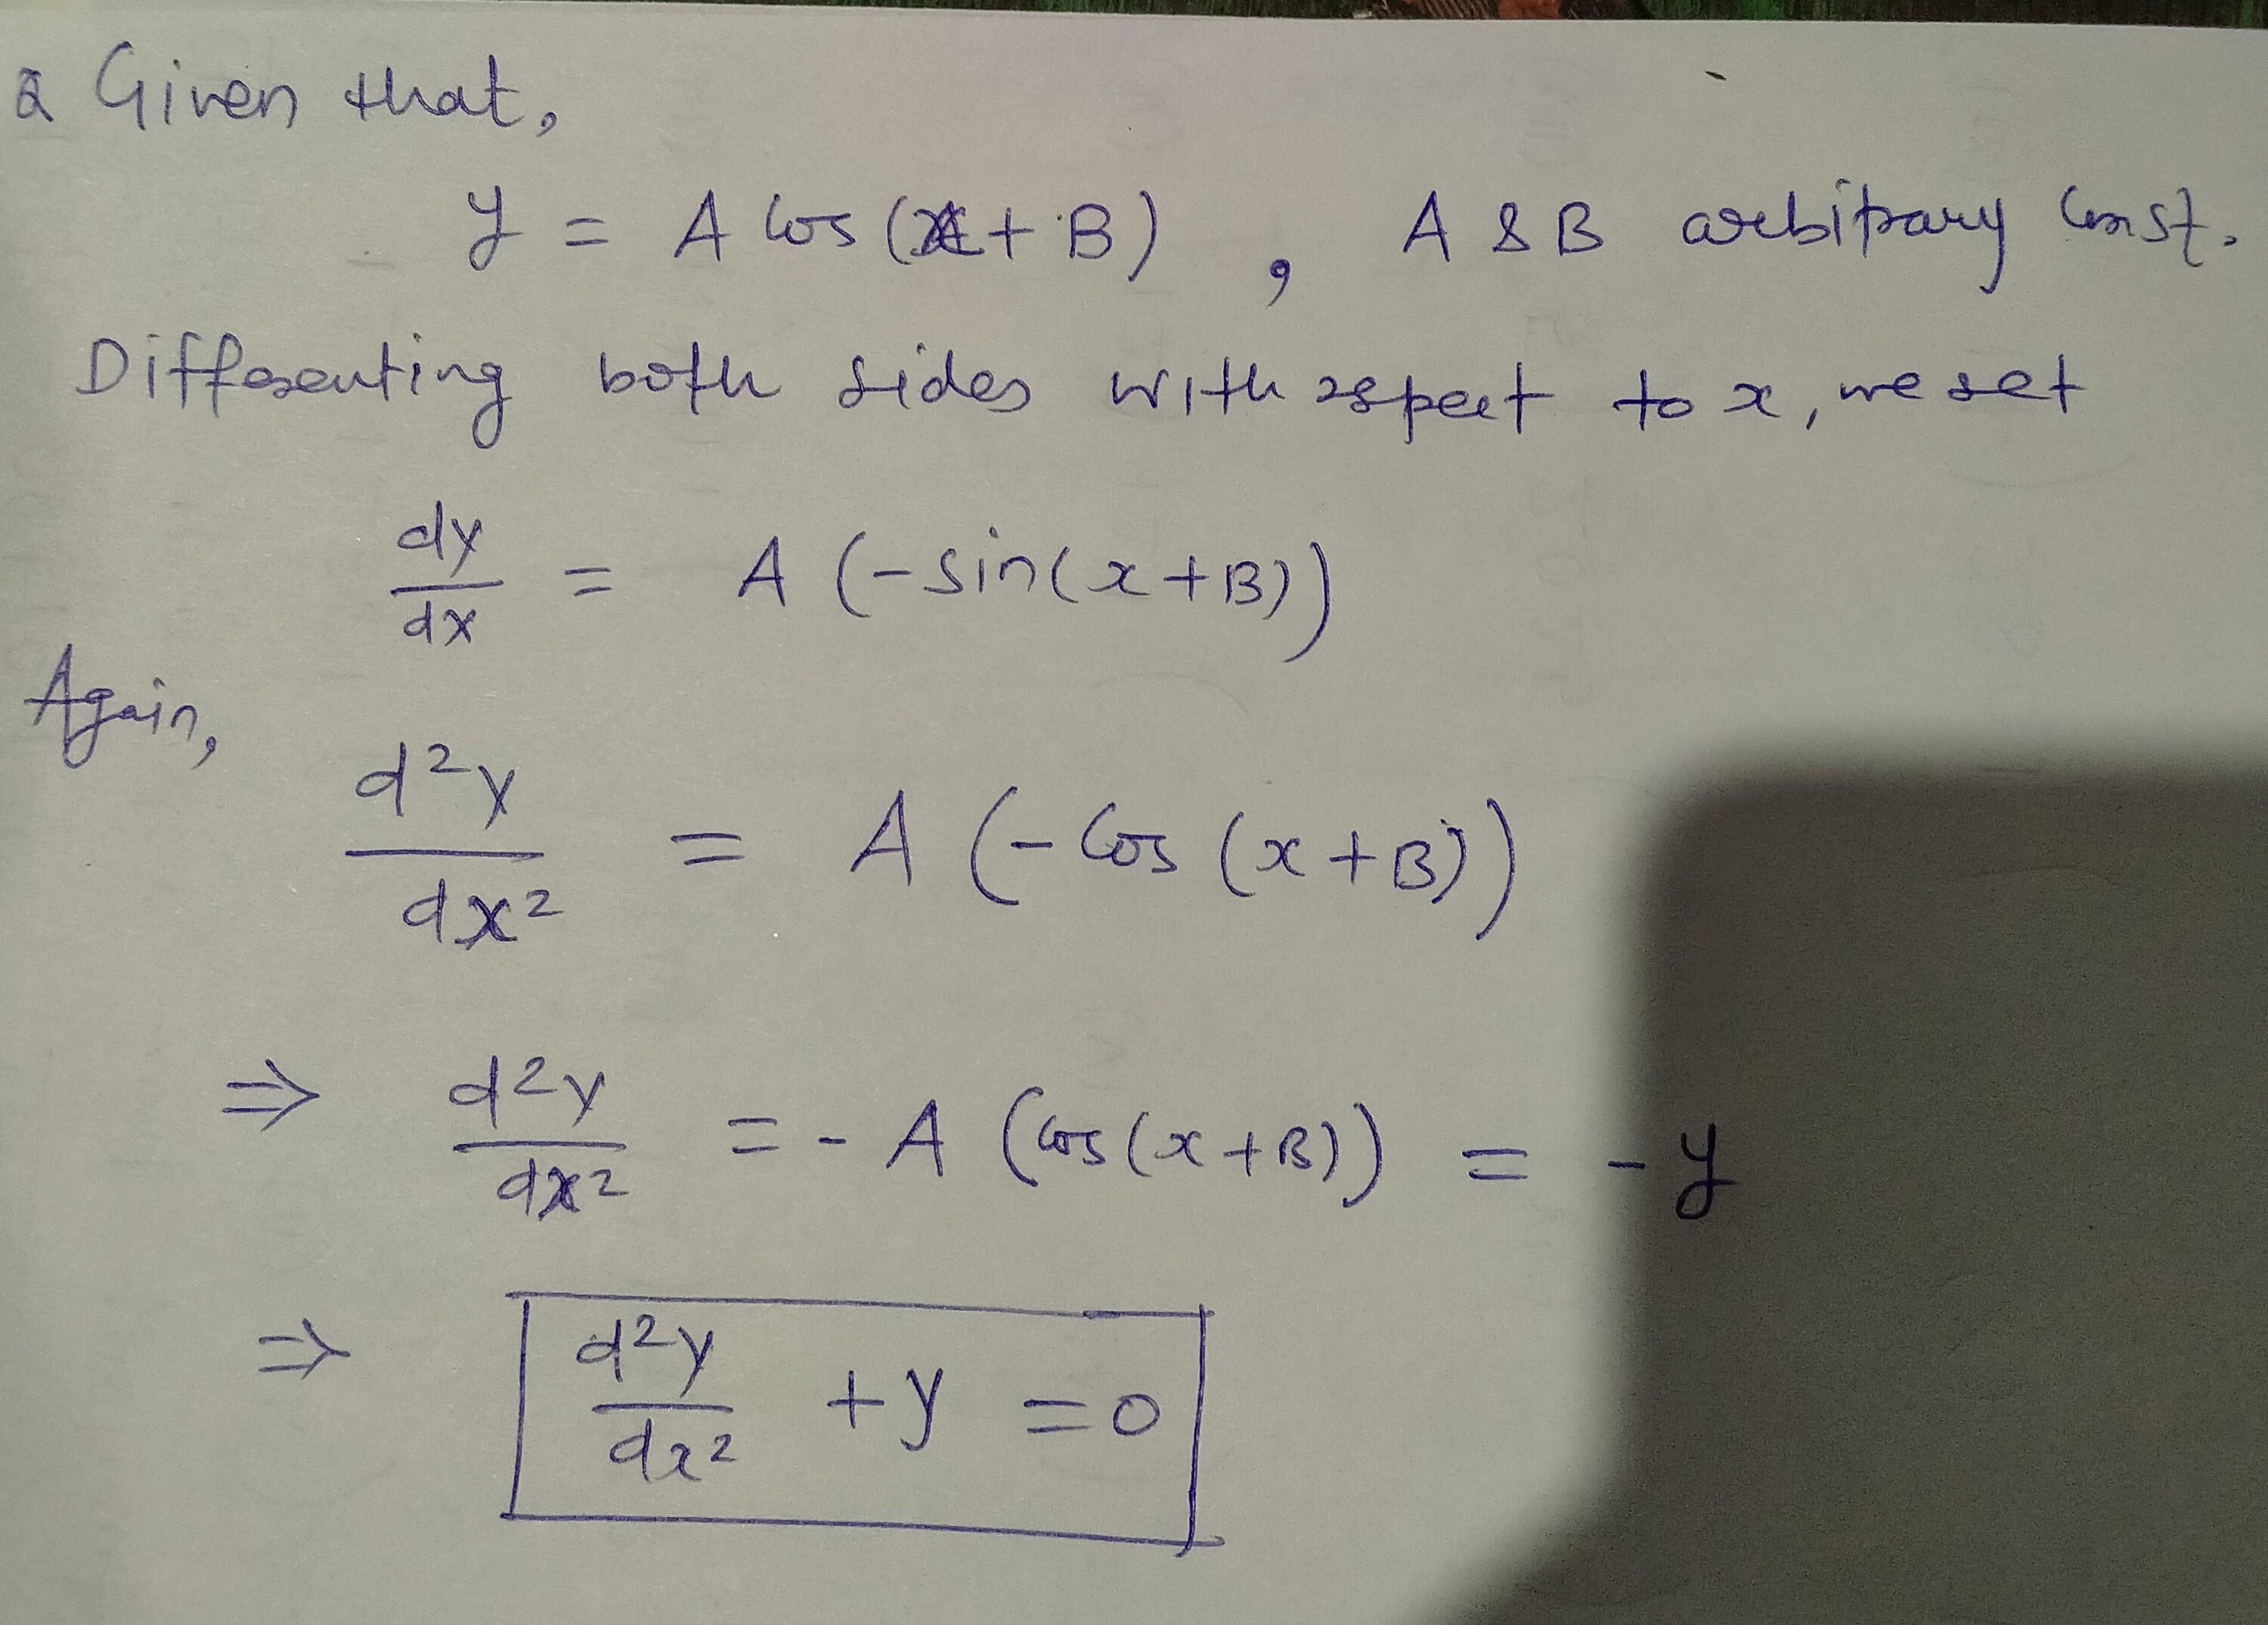 Q Given that,
y = A cos (x + B) , A & B arbitrary const.
Differenting both sides with respect to x, we get
dy/dx = A (-sin(x+B))
Again,
d²y/dx² = A (-cos (x+B))
⇒ d²y/dx² = - A (cos(x+B)) = - y
⇒ d²y/dx² + y = 0